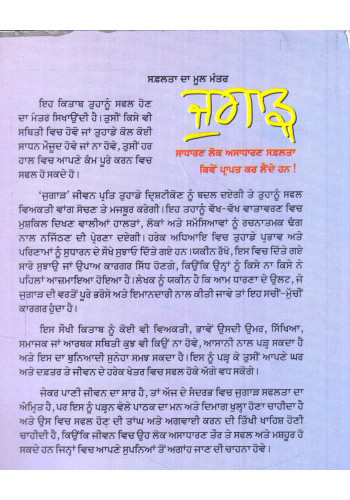 ਸਫ਼ਲਤਾ ਦਾ ਮੂਲ ਮੰਤਰ
ਜੁਗਾੜ
ਸਾਧਾਰਣ ਲੋਕ ਅਸਾਧਾਰਣ ਸਫ਼ਲਤਾ
ਕਿਵੇਂ ਪ੍ਰਾਪਤ ਕਰ ਲੈਂਦੇ ਹਨ !
ਇਹ ਕਿਤਾਬ ਤੁਹਾਨੂੰ ਸਫਲ ਹੋਣ
ਦਾ ਮੰਤਰ ਸਿਖਾਉਂਦੀ ਹੈ। ਤੁਸੀਂ ਕਿਸੇ ਵੀ
ਸਥਿਤੀ ਵਿਚ ਹੋਵੋ ਜਾਂ ਤੁਹਾਡੇ ਕੋਲ ਕੋਈ
ਸਾਧਨ ਮੌਜੂਦ ਹੋਵੇ ਜਾਂ ਨਾ ਹੋਵੇ, ਤੁਸੀਂ ਹਰ
ਹਾਲ ਵਿਚ ਆਪਣੇ ਕੰਮ ਪੂਰੇ ਕਰਨ ਵਿਚ
ਸਫਲ ਹੋ ਸਕਦੇ ਹੋ।
'ਜੁਗਾੜ' ਜੀਵਨ ਪ੍ਰਤਿ ਤੁਹਾਡੇ ਦ੍ਰਿਸ਼ਟੀਕੋਣ ਨੂੰ ਬਦਲ ਦਏਗੀ ਤੇ ਤੁਹਾਨੂੰ ਸਫਲ
ਵਿਅਕਤੀ ਵਾਂਗ ਸੋਚਣ ਤੇ ਮਜਬੂਰ ਕਰੇਗੀ। ਇਹ ਤਹਾਨੂੰ ਵੱਖ-ਵੱਖ ਵਾਤਾਵਰਣ ਵਿਚ
ਮੁਸ਼ਕਿਲ ਦਿਖਣ ਵਾਲੀਆਂ ਹਾਲਤਾਂ, ਲੋਕਾਂ ਅਤੇ ਸਮੱਸਿਆਵਾਂ ਨੂੰ ਰਚਨਾਤਮਕ ਢੰਗ
ਨਾਲ ਨਜਿੱਠਣ ਦੀ ਪ੍ਰੇਰਣਾ ਦਏਗੀ। ਹਰੇਕ ਅਧਿਆਇ ਵਿਚ ਤੁਹਾਡੇ ਪ੍ਰਭਾਵ ਅਤੇ
ਪਰਿਣਾਮਾਂ ਨੂੰ ਸੁਧਾਰਨ ਦੇ ਸੌਖੇ ਸੁਝਾਓ ਦਿੱਤੇ ਗਏ ਹਨ। ਯਕੀਨ ਰੱਖੋ, ਇਸ ਵਿਚ ਦਿੱਤੇ ਗਏ
ਸਾਰੇ ਸੁਝਾਉ ਜਾਂ ਉਪਾਅ ਕਾਰਗਰ ਸਿੱਧ ਹੋਣਗੇ, ਕਿਉਂਕਿ ਉਨ੍ਹਾਂ ਨੂੰ ਕਿਸੇ ਨਾ ਕਿਸੇ ਨੇ
ਪਹਿਲਾਂ ਆਜ਼ਮਾਇਆ ਹੋਇਆ ਹੈ। ਲੇਖਕ ਨੂੰ ਯਕੀਨ ਹੈ ਕਿ ਆਮ ਧਾਰਣਾ ਦੇ ਉਲਟ, ਜੇ
ਜੁਗਾੜ ਦੀ ਵਰਤੋਂ ਪੂਰੇ ਭਰੋਸੇ ਅਤੇ ਇਮਾਨਦਾਰੀ ਨਾਲ ਕੀਤੀ ਜਾਵੇ ਤਾਂ ਇਹ ਸਚੀਂ-ਮੁੱਚੀਂ
ਕਾਰਗਰ ਹੁੰਦਾ ਹੈ।
ਇਸ ਸੌਖੀ ਕਿਤਾਬ ਨੂੰ ਕੋਈ ਵੀ ਵਿਅਕਤੀ, ਭਾਵੇਂ ਉਸਦੀ ਉਮਰ, ਸਿੱਖਿਆ,
ਸਮਾਜਕ ਜਾਂ ਆਰਥਕ ਸਥਿਤੀ ਕੁਝ ਵੀ ਕਿਉਂ ਨਾ ਹੋਵੇ, ਆਸਾਨੀ ਨਾਲ ਪੜ੍ਹ ਸਕਦਾ ਹੈ
ਅਤੇ ਇਸ ਦਾ ਬੁਨਿਆਦੀ ਸੁਨੇਹਾ ਸਮਝ ਸਕਦਾ ਹੈ। ਇਸ ਨੂੰ ਪੜ੍ਹ ਕੇ ਤੁਸੀਂ ਆਪਣੇ ਘਰ
ਅਤੇ ਦਫ਼ਤਰ ਤੇ ਜੀਵਨ ਦੇ ਹਰੇਕ ਖ਼ੇਤਰ ਵਿਚ ਸਫਲ ਹੋਕੇ ਅੱਗੇ ਵਧ ਸਕੋਗੇ।
ਜੇਕਰ ਪਾਣੀ ਜੀਵਨ ਦਾ ਸਾਰ ਹੈ, ਤਾਂ ਅੱਜ ਦੇ ਸੰਦਰਭ ਵਿਚ ਜੁਗਾੜ ਸਫਲਤਾ ਦਾ
ਅੰਮ੍ਰਿਤ ਹੈ, ਪਰ ਇਸ ਨੂੰ ਪੜ੍ਹਨ ਵੇਲੇ ਪਾਠਕ ਦਾ ਮਨ ਅਤੇ ਦਿਮਾਗ ਖੁਲ੍ਹਾ ਹੋਣਾ ਚਾਹੀਦਾ ਹੈ
ਅਤੇ ਉਸ ਵਿਚ ਸਫਲ ਹੋਣ ਦੀ ਤਾਂਘ ਅਤੇ ਅਗਵਾਈ ਕਰਨ ਦੀ ਤਿੱਖੀ ਖਾਹਿਸ਼ ਹੋਣੀ
ਚਾਹੀਦੀ ਹੈ, ਕਿਉਂਕਿ ਜੀਵਨ ਵਿਚ ਉਹ ਲੋਕ ਅਸਾਧਾਰਣ ਤੌਰ ਤੇ ਸਫਲ ਅਤੇ ਮਸ਼ਹੂਰ ਹੋ
ਸਕਦੇ ਹਨ ਜਿਨ੍ਹਾਂ ਵਿਚ ਆਪਣੇ ਸੁਪਨਿਆਂ ਤੋਂ ਅਗਾਂਹ ਜਾਣ ਦੀ ਚਾਹਨਾ ਹੋਵੇ।